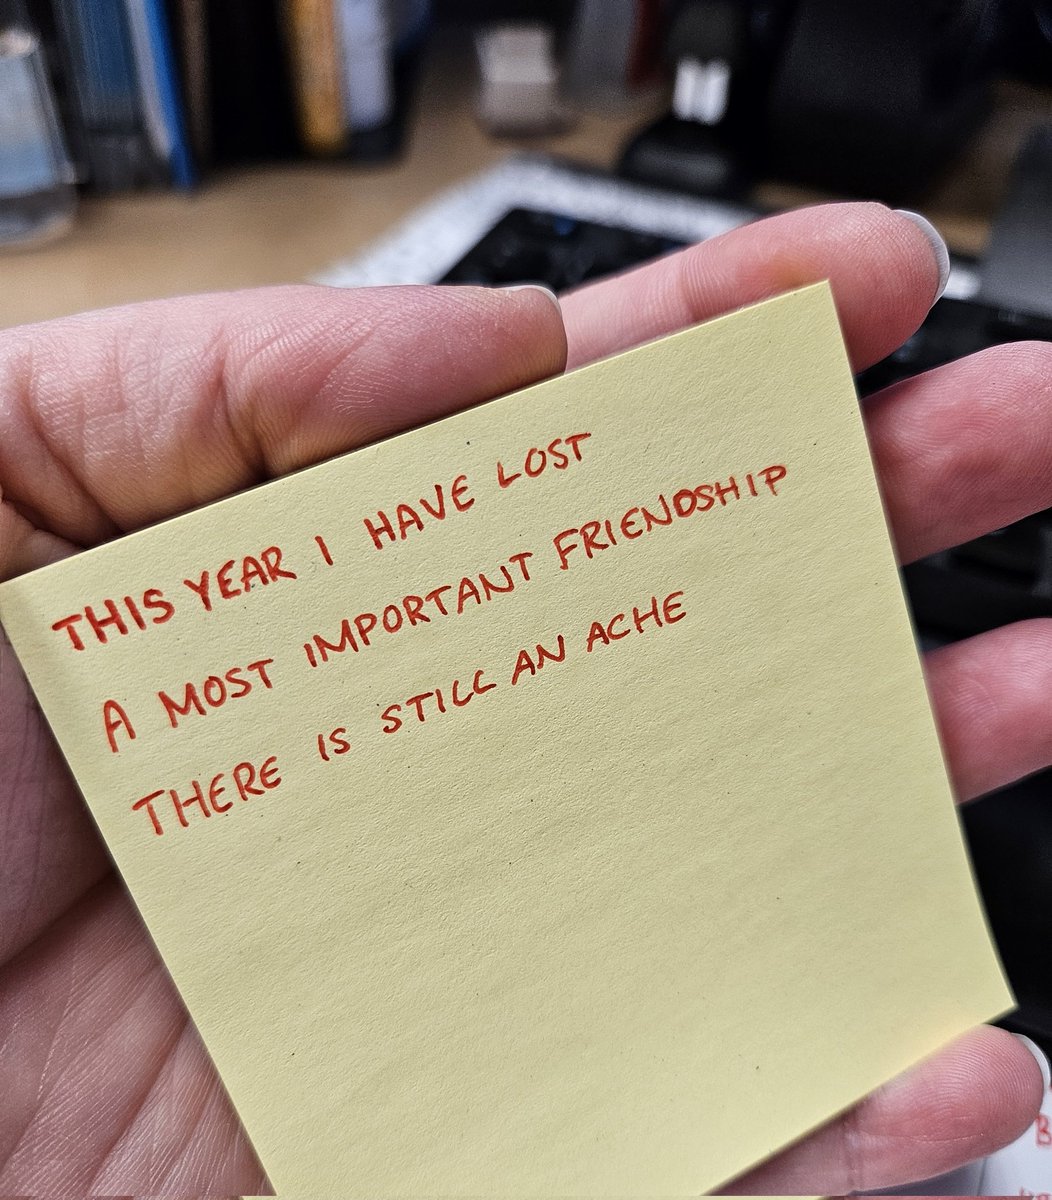 THIS YEAR I HAVE LOST
A MOST IMPORTANT FRIENDSHIP
THERE IS STILL AN ACHE